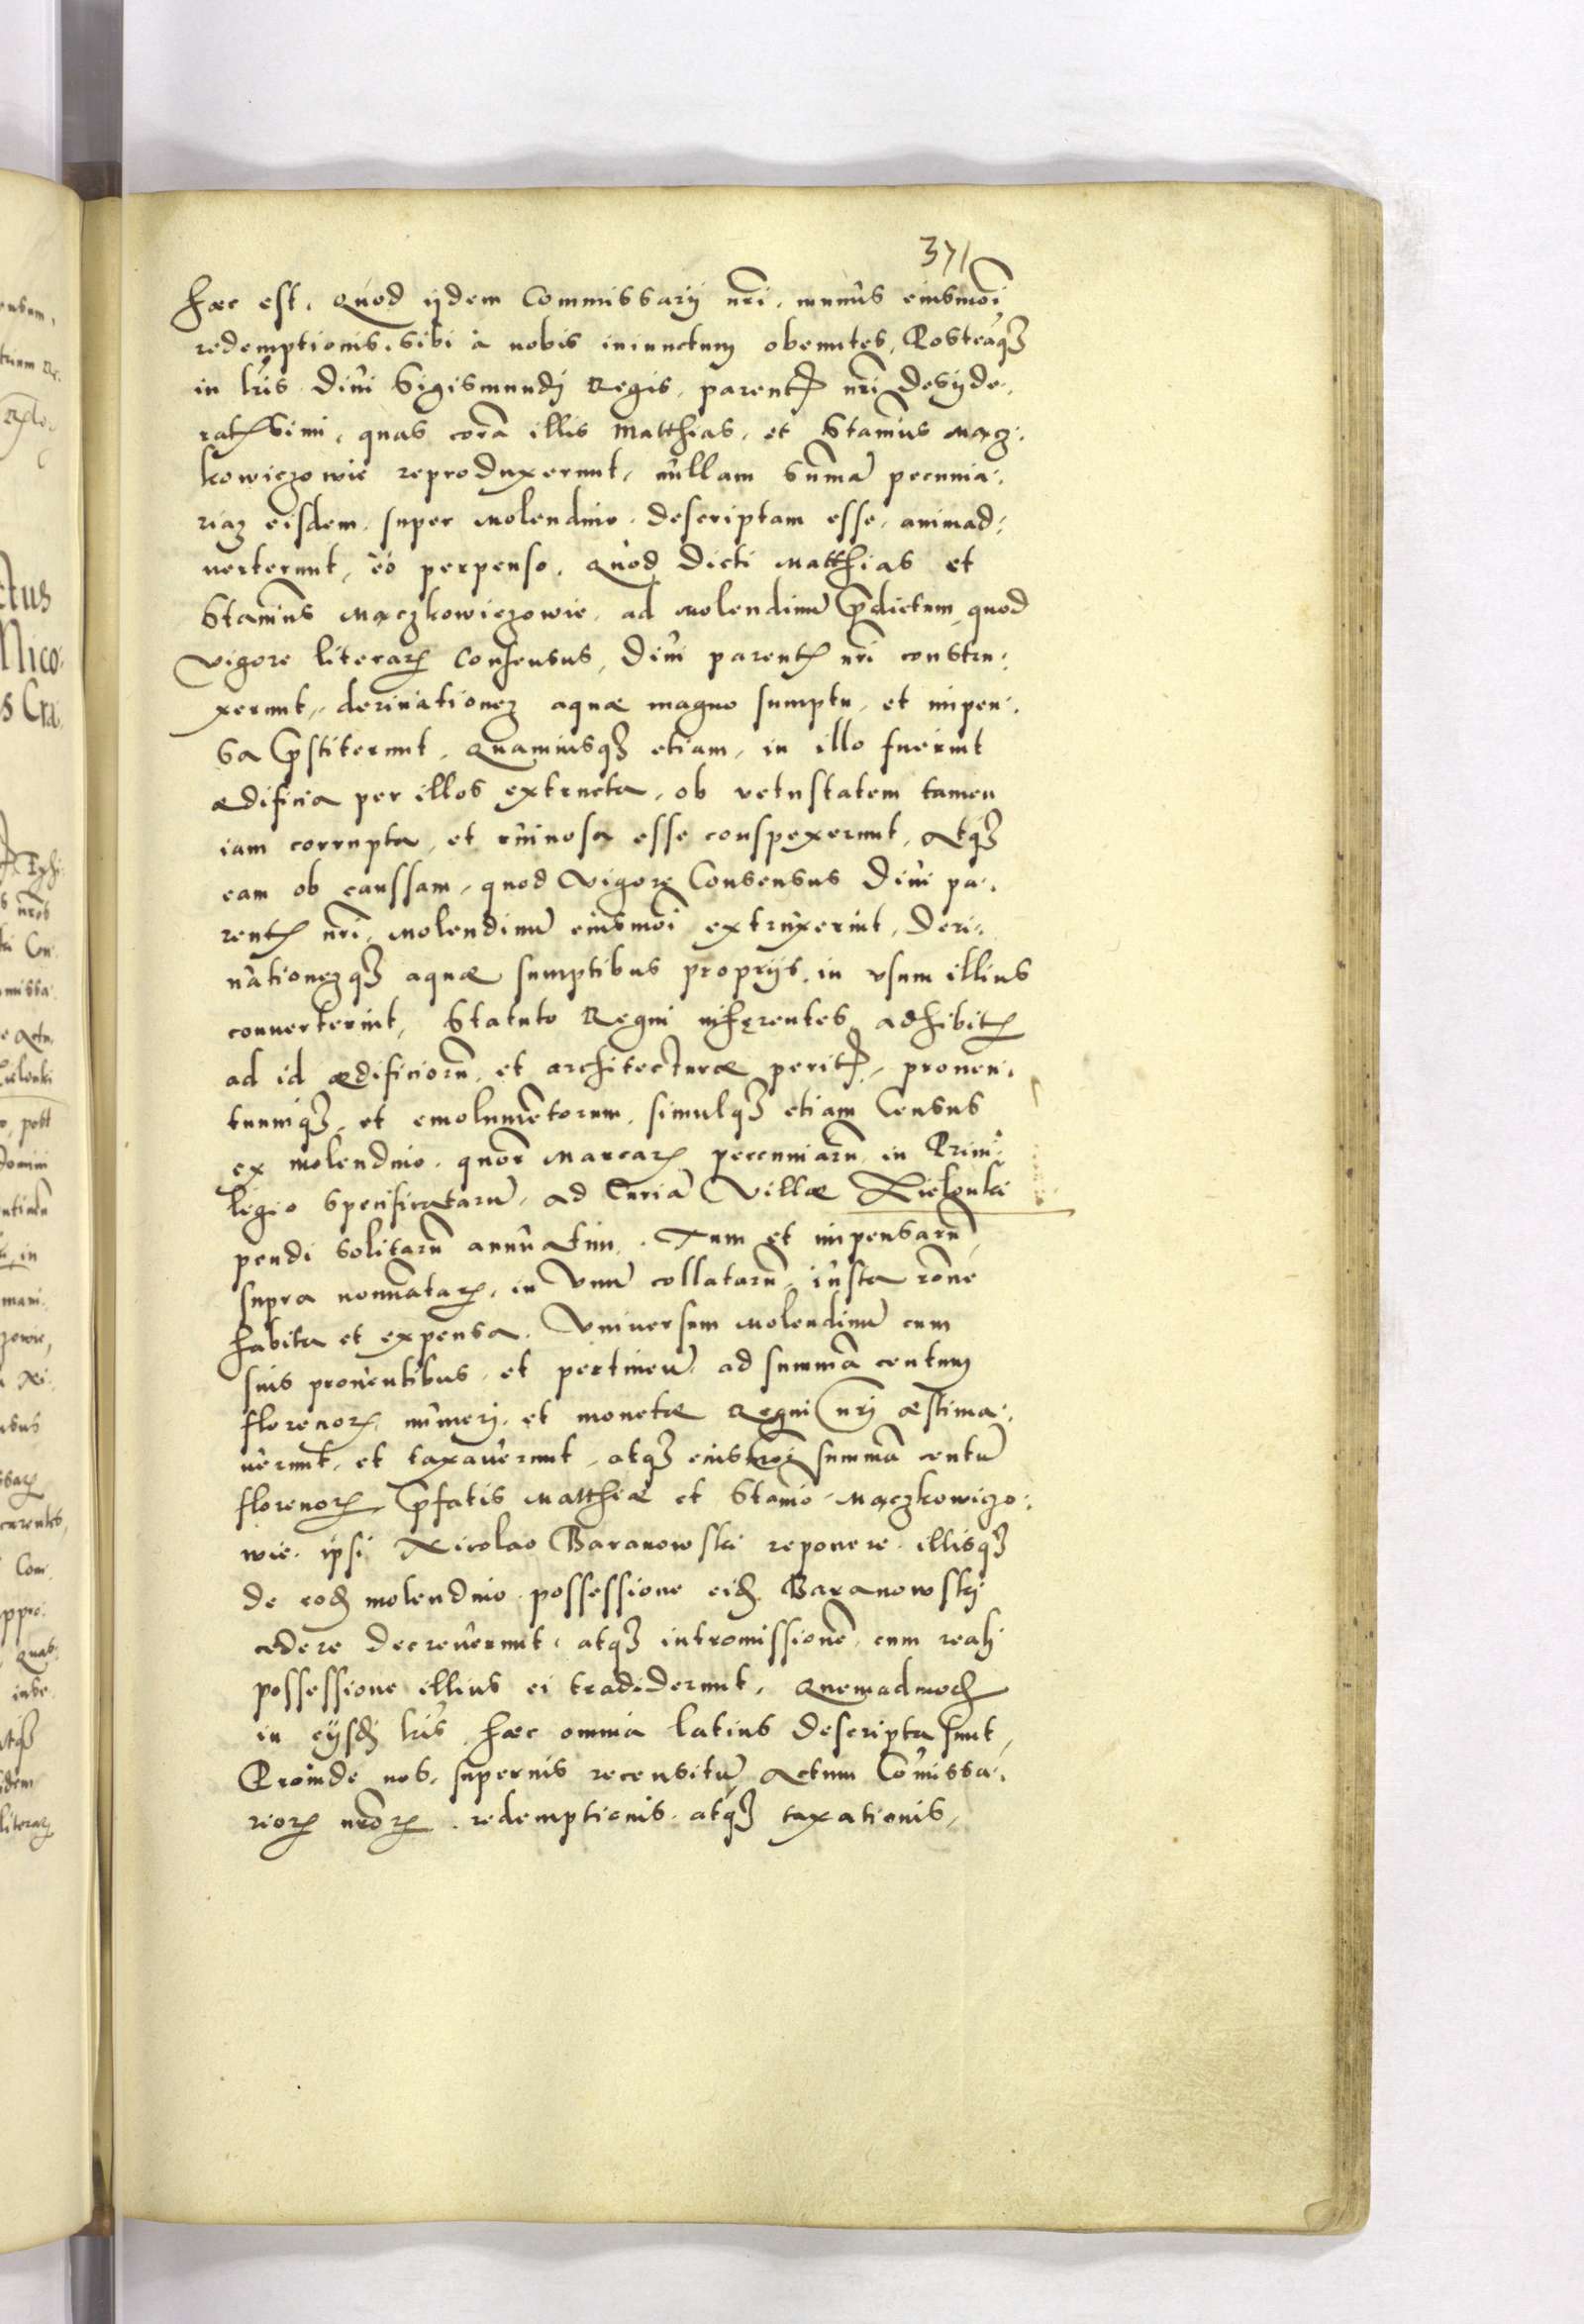 371
haec est. Quod ijdem Commissarij nri. munus eiusmoi
redemptionis, sibi à nobis iniunctum obeuntes, Posteaq3
in lris Divi Sigismundj Regis, parentis nri Desyde-
ratissimi, quas corã illis Matthias, et Stanius Mącz-
kowiczowie reproduxerunt, nullam summã pecunia-
riaz eisdem super Molendino descriptam esse, animad-
verterunt, eo perpenso, Quod dicti Matthias et
Stanius Mączkowiczowie, ad Molendinũ p̃dictum quod
vigore literarꝝ Consensus, Divi parentis nri constru-
xerunt, derivationez aquæ magno sumptu, et impen-
sa p̃stiterunt, Quamvisq3 etiam, in illo fuerint
ædificia per illos extructa, ob vetustatem tamen
iam corrupta, et ruinosa esse conspexerunt, Atq3
eam ob caussam, quod vigore Consensus Divi pa-
rentis nri, Molendinũ eiusmoi extruxerint, Deri-
vationezq3 aquæ sumptibus proprijs, in usum illius
converterint, Statuto Regni inhęrentes, adhibitis
ad id ædificiorũ, et architecturæ peritis, proven-
tuumq3, et emolumẽtorum, simulq3 etiam Census
ex molendino, quor Marcarꝝ pecuniarũ, in Privi-
legio specificatarũ, ad Curiã Villæ Zielonki
pendi solitarũ annuatim. Tum et impensarũ,
supra nominatarꝝ, in unũ collatarũ, iusta rone
habita et expensa. Universum Molendinũ cum
suis proventibus, et pertinen̄, ad summã centum
florenorꝝ, numerj, et monetæ Regni nrj æstima-
verunt, et taxaverunt, atq3 eiusmoi summã centũ
florenorꝝ, p̃fatis Matthiæ et Stanio Mączkowiczo-
wie, ipsi Nicolao Baranowski reponere, illisq3
de eod molendino possessione eid Baranowskj
cedere decreverunt, atq3 intromissionẽ, cum realj
possessione illius ei tradiderunt, Quemadmod
in eijsd lris, haec omnia latius descripta sunt,
Proinde nos, supernis recensitũ, Actum Comissa-
riorꝝ nrorꝝ, redemptionis, atq3 taxationis,